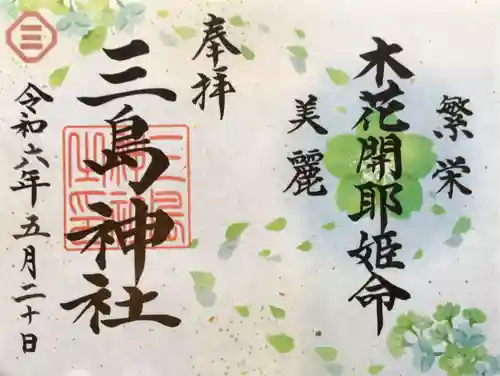 繁栄
木花開耶姫命
美麗
奉拝
三島神社
令和六年五月二十日